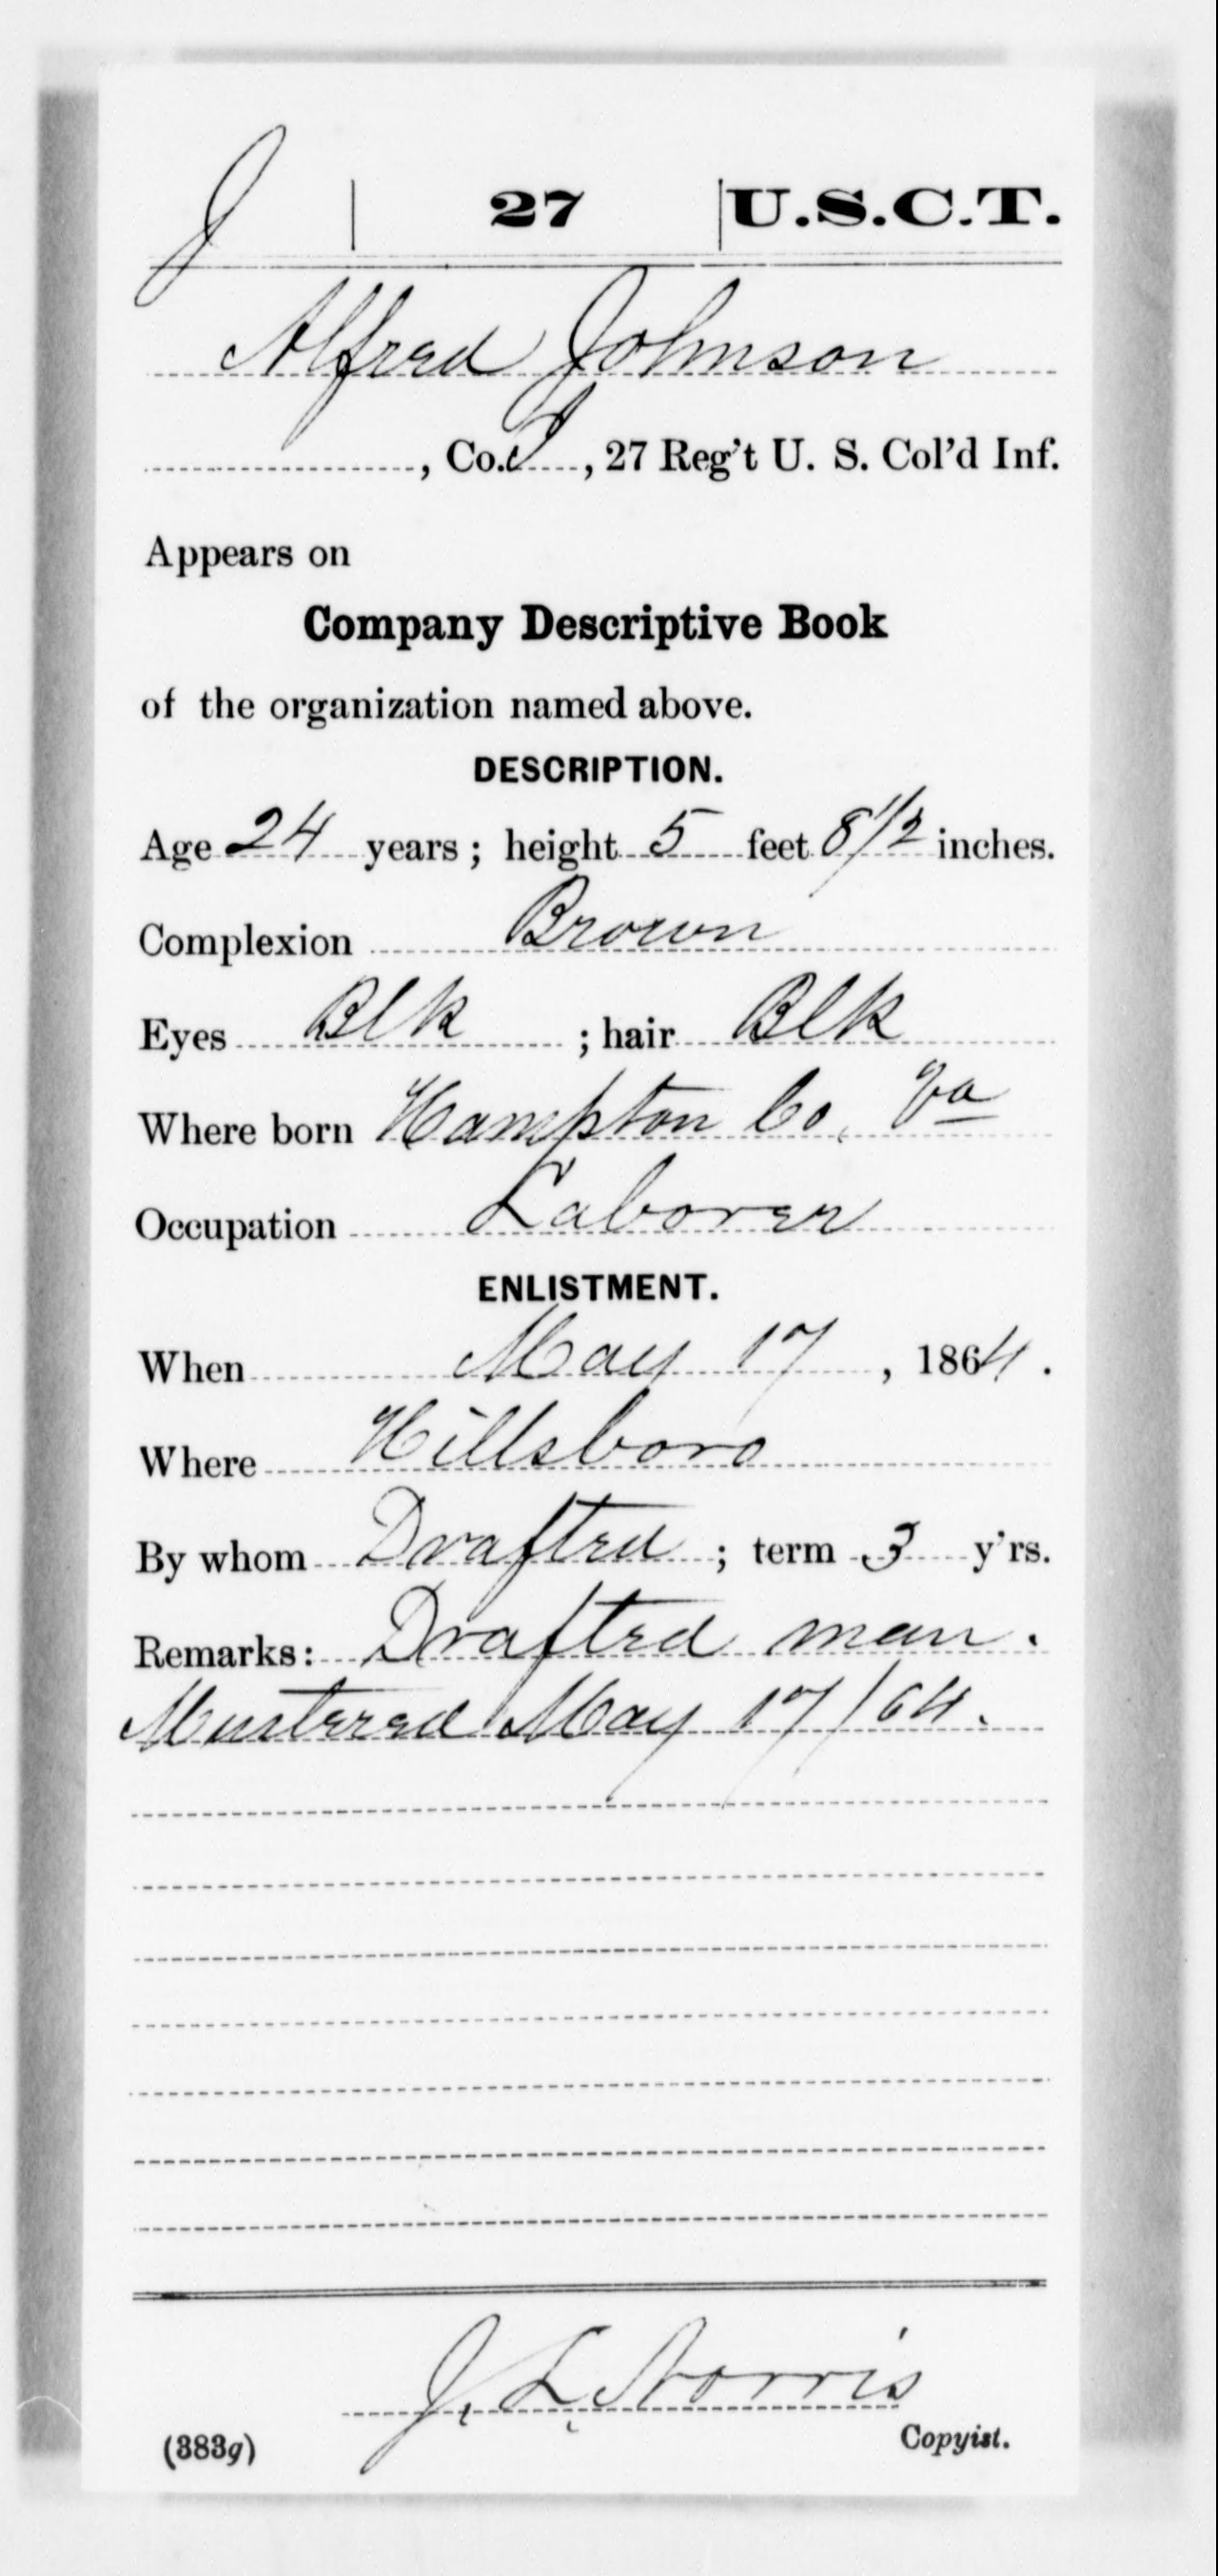 J | 27 | U.S.C.T.
Alfred Johnson
, Co. I, 27 Reg't U. S. Col'd Inf.
Appears on
Company Descriptive Book
of the organization named above.
DESCRIPTION.
Age 24 years; height 5 feet 8 1/2 inches.
Complexion Brown
Eyes Blk ; hair Blk
Where born Hampton Co, Va
Occupation Laborer
ENLISTMENT.
When May 17, 1864.
Where Hillsboro
By whom Drafted; term 3 y'rs.
Remarks: Drafted man.
Mustered May 17/64.
J. L. Norris
(383g) Copyist.